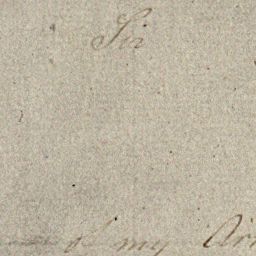 Sir
of my Arr